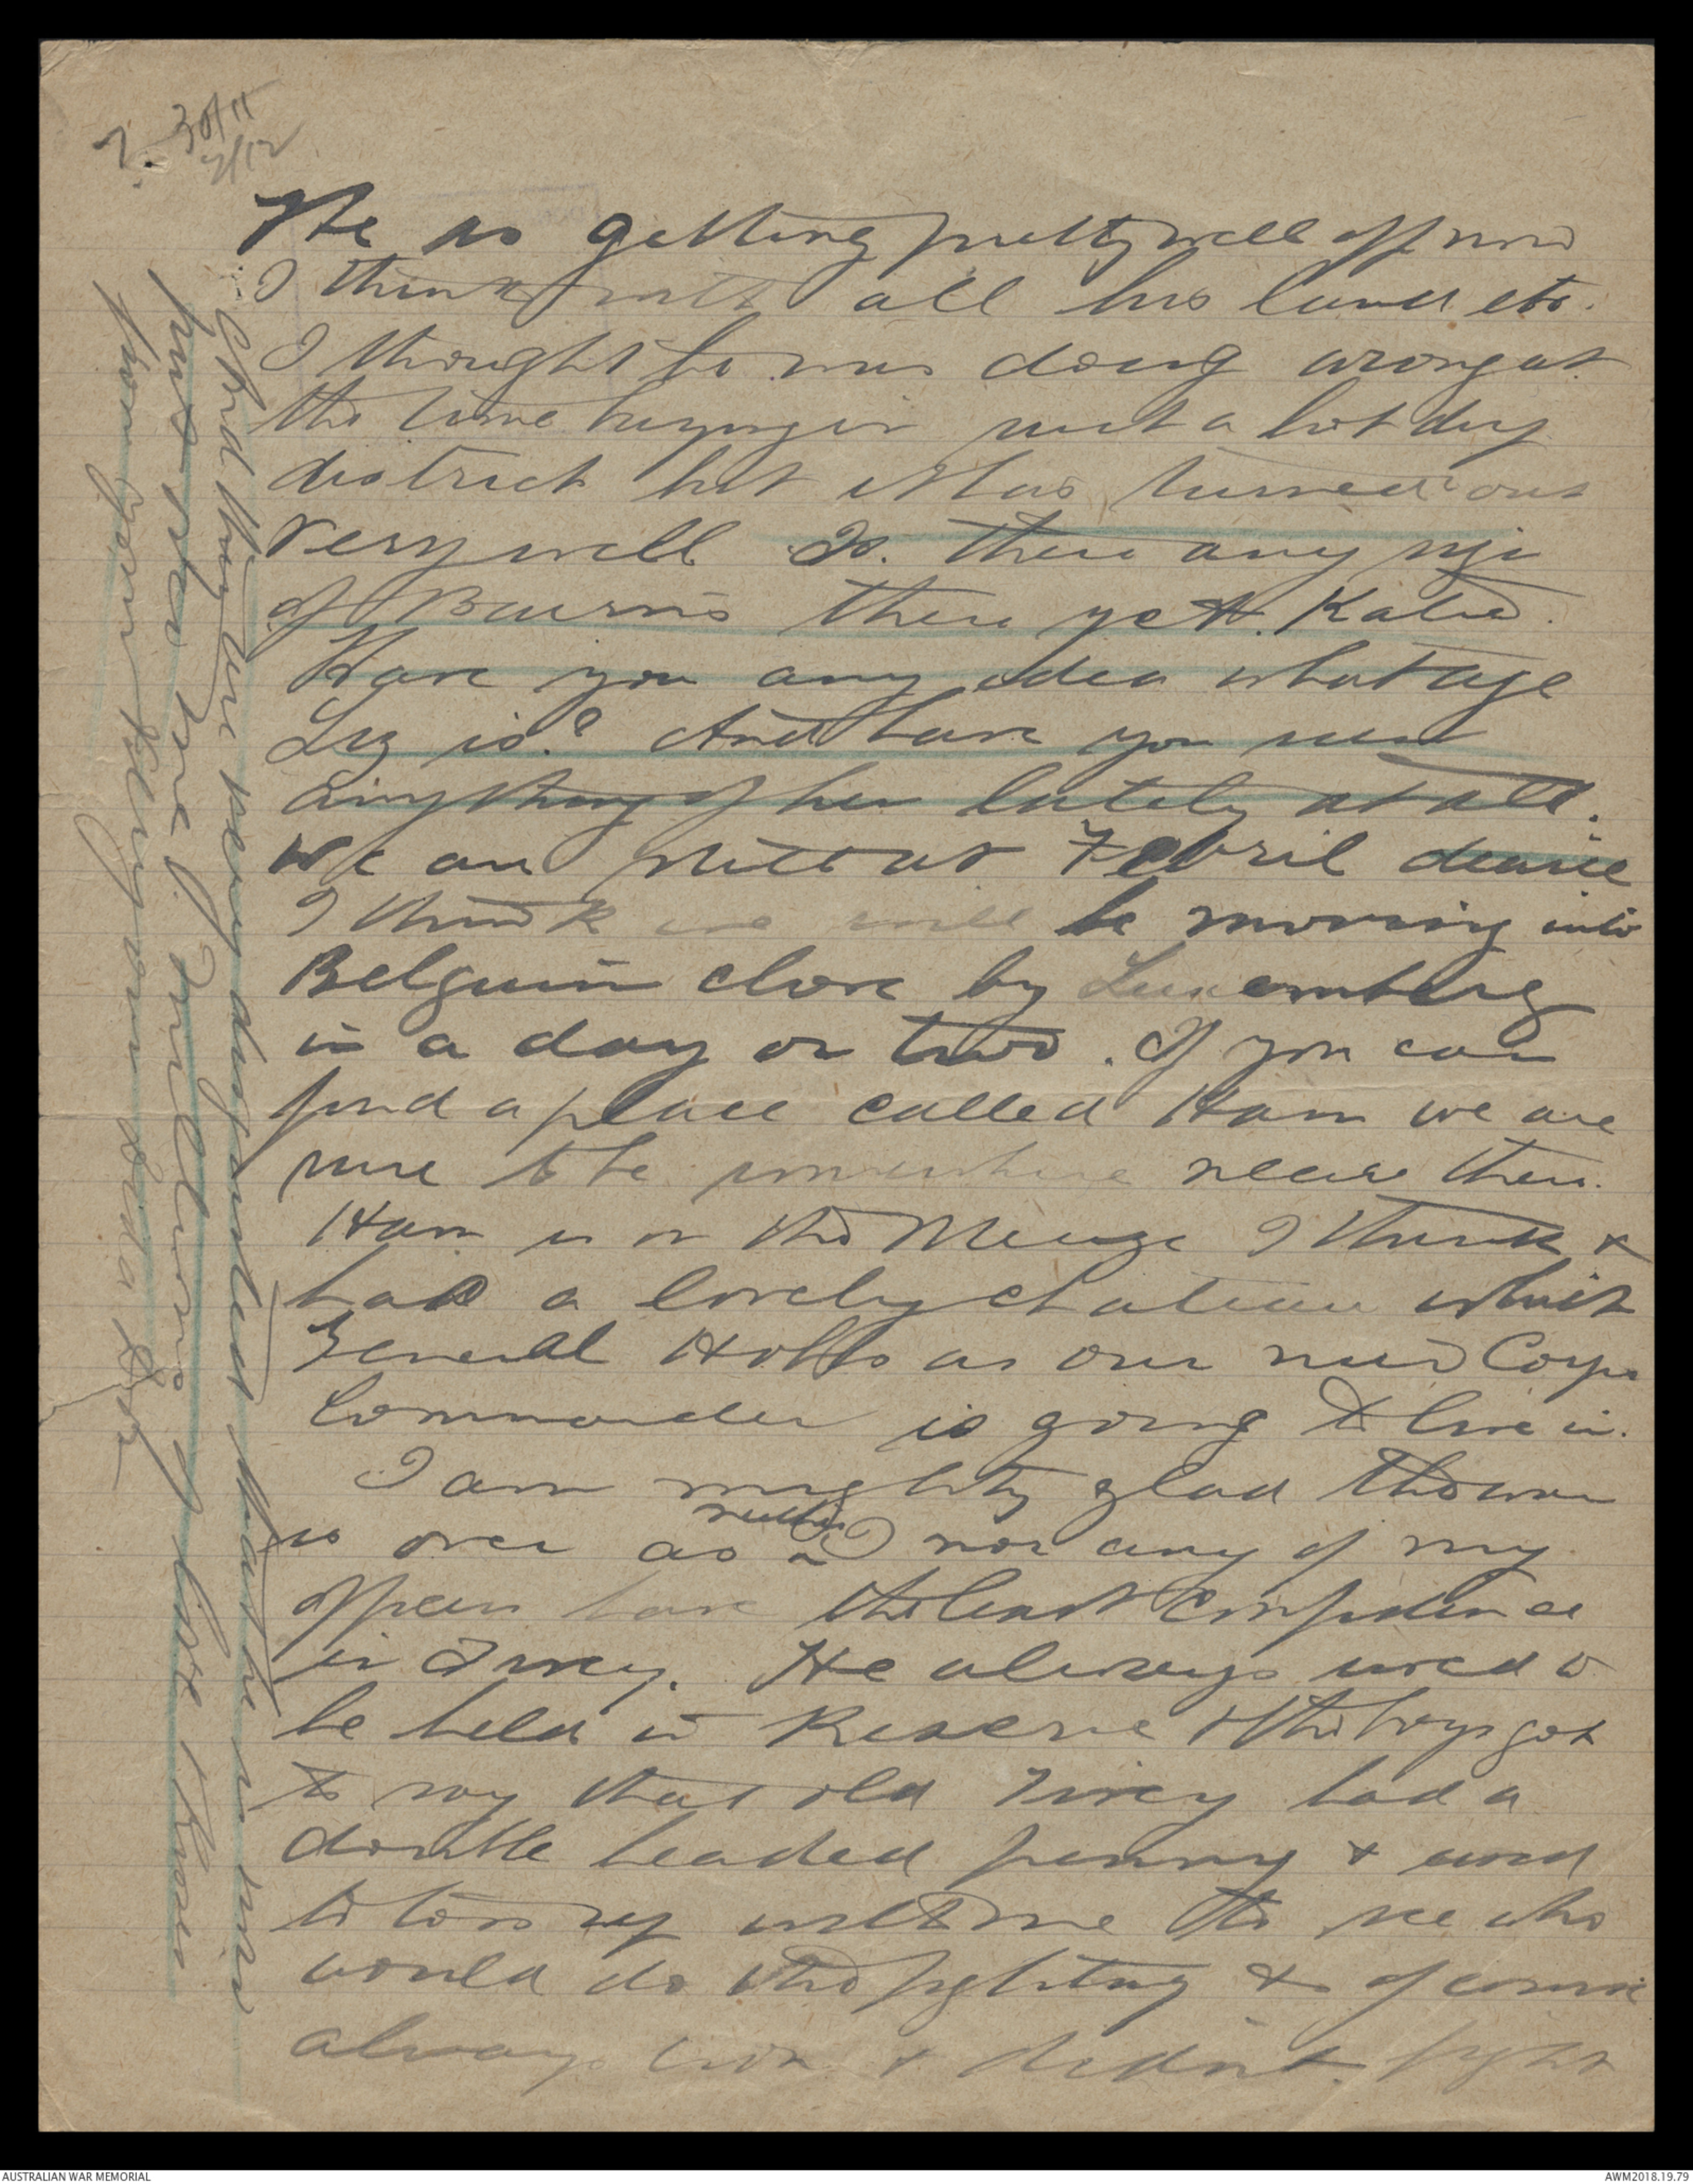 2.
30/11
2/12
He is getting pretty well off now
I think with all his land etc.
I thought he was doing wrong at
the time buying in such a hot dry
district but it has turned out
very well Is there any sign
of Bairns there yet. Katie.
Have you any idea what age
Liz is? And have you seen
anything of her lately at all.
We are still at Febvril
I think we will be moving into
Belguim close by Luxemberg
in a day or two. If you can
find a place called Ham we are
sure to be somewhere near there.
Ham is on the Meuze I think &
has a lovely chateau which
General Hobbs as our new Corps
Commander is going to live in.
I am mighty glad the war
is over as neither I nor any of my
officers have the least confidence
in Tivey. He always used to
be held in Reserve & the boys got
to say that old Tivey had a
double headed penny & used
to toss up with me to see who
would do the fighting & of course
always won & didnt fight
And they are very disgusted that he is now
put over me. Fondest love &
from your loving